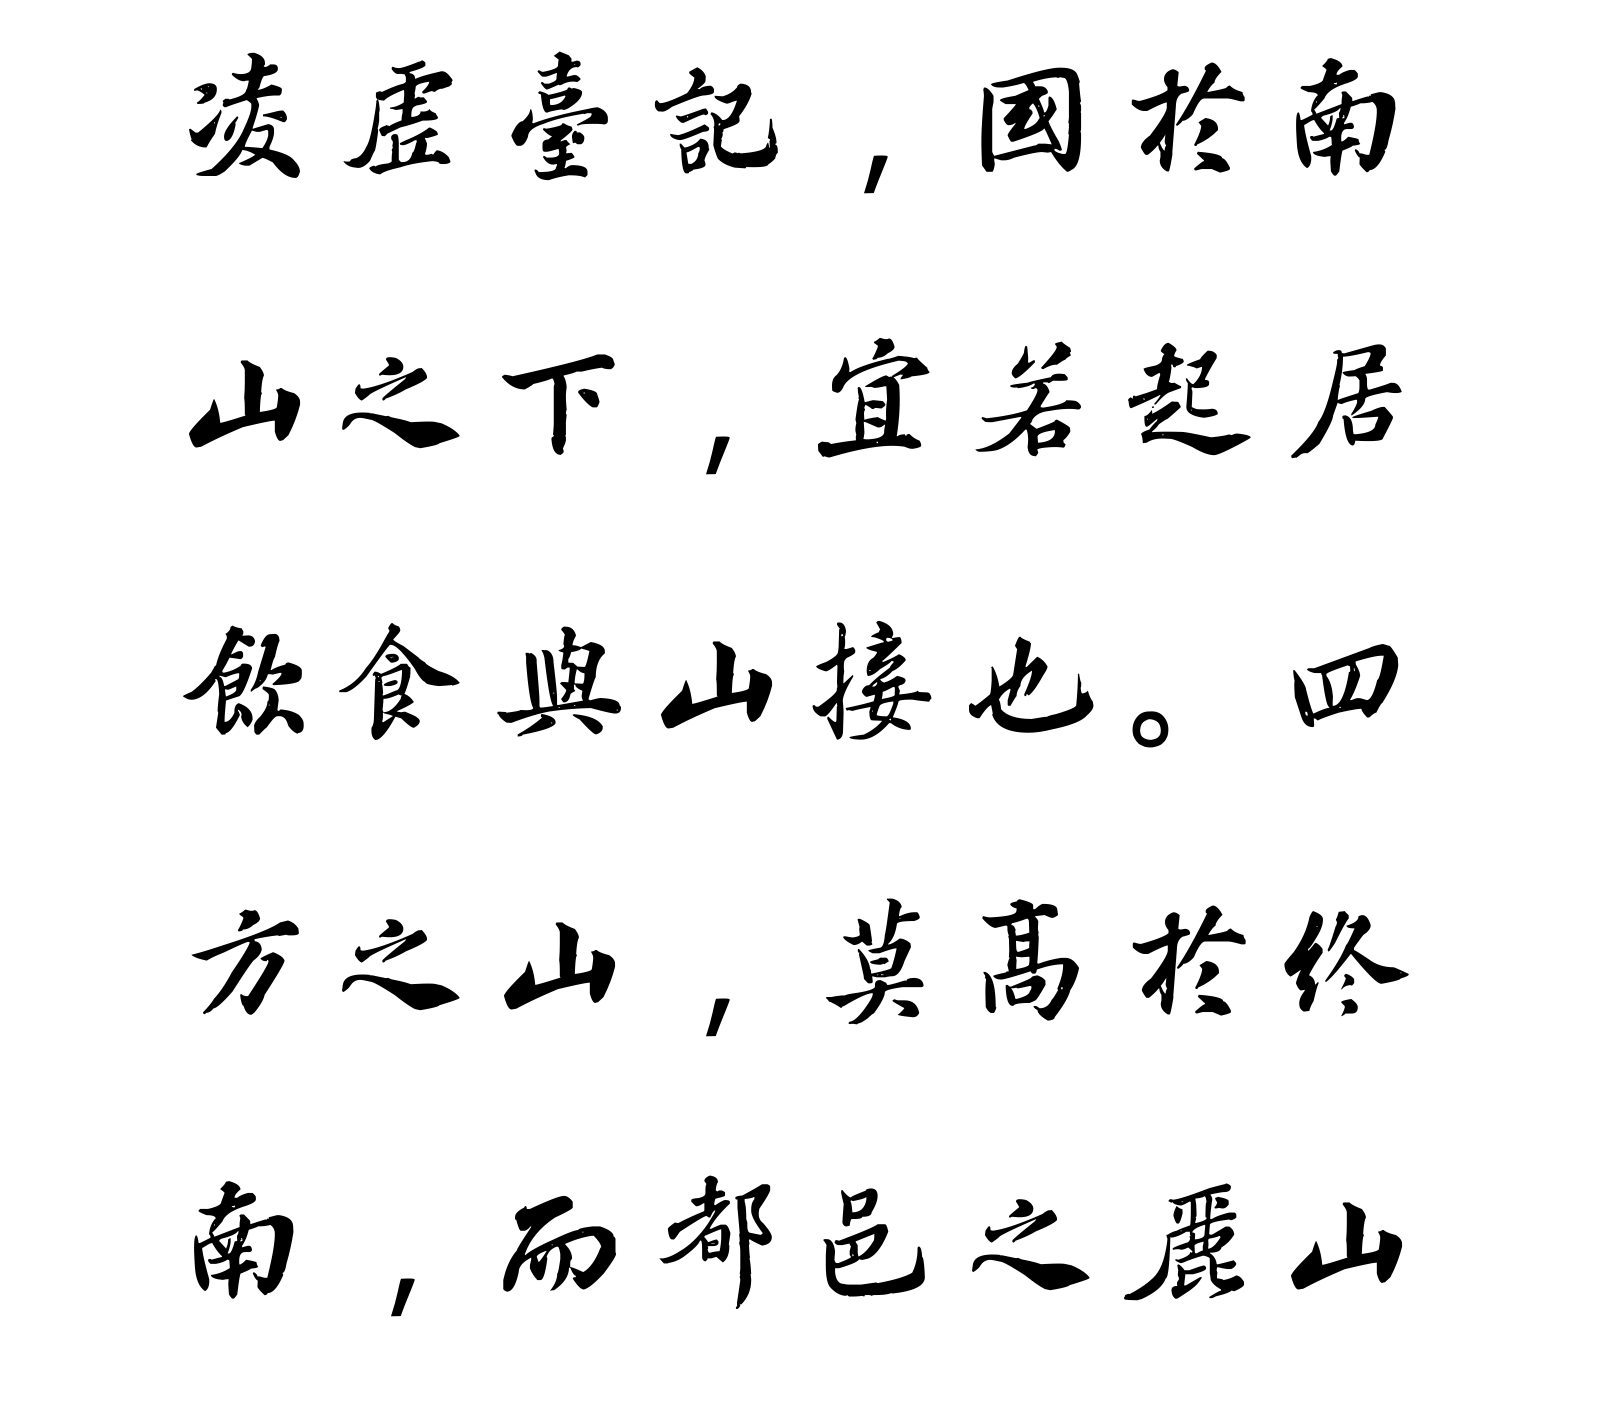 凌虛臺記，國於南
山之下，宜若起居
飲食與山接也。四
方之山，莫高於終
南，而都邑之麗山